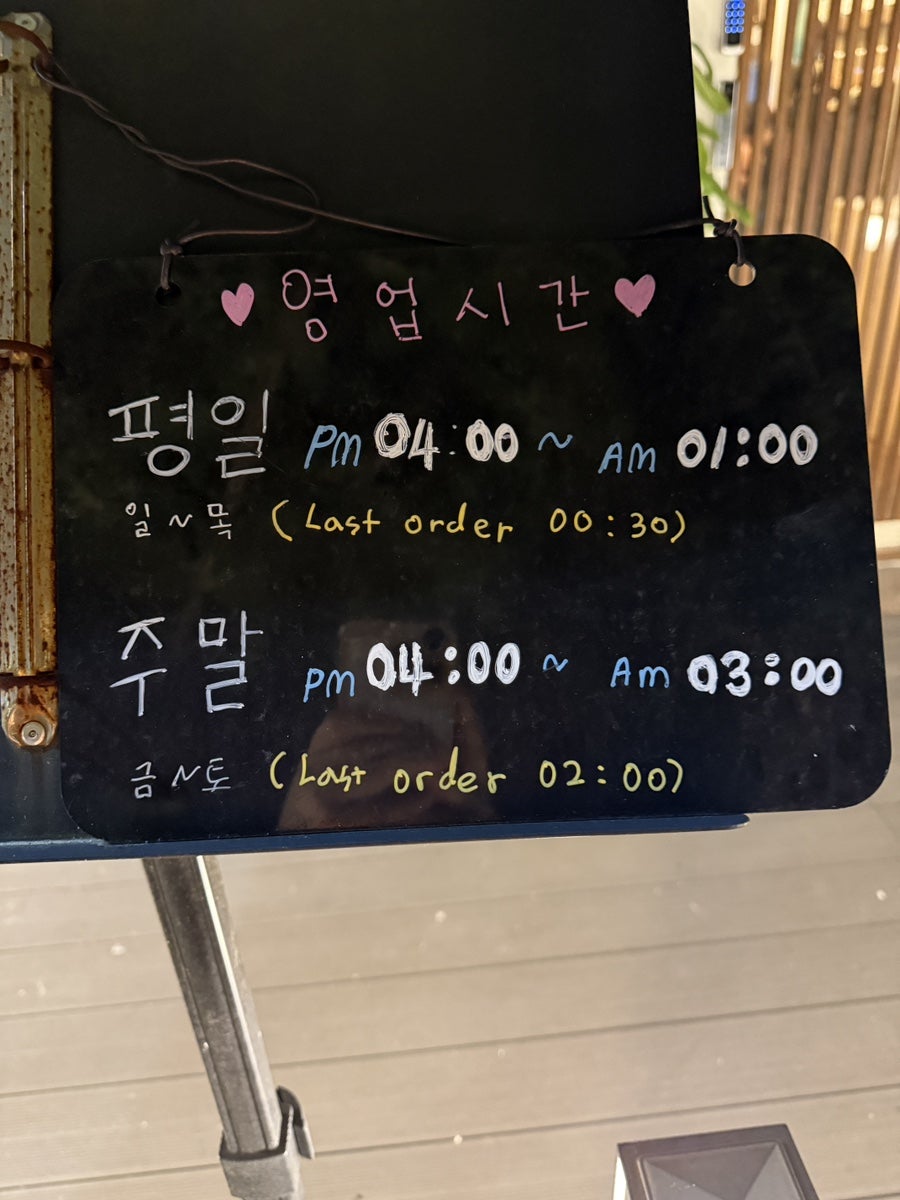 ♥ 영업시간 ♥
평일 Pm 04:00 ~ AM 01:00
일~목 (Last order 00:30)
주말 pm 04:00 ~ Am 03:00
금~토 (Last order 02:00)